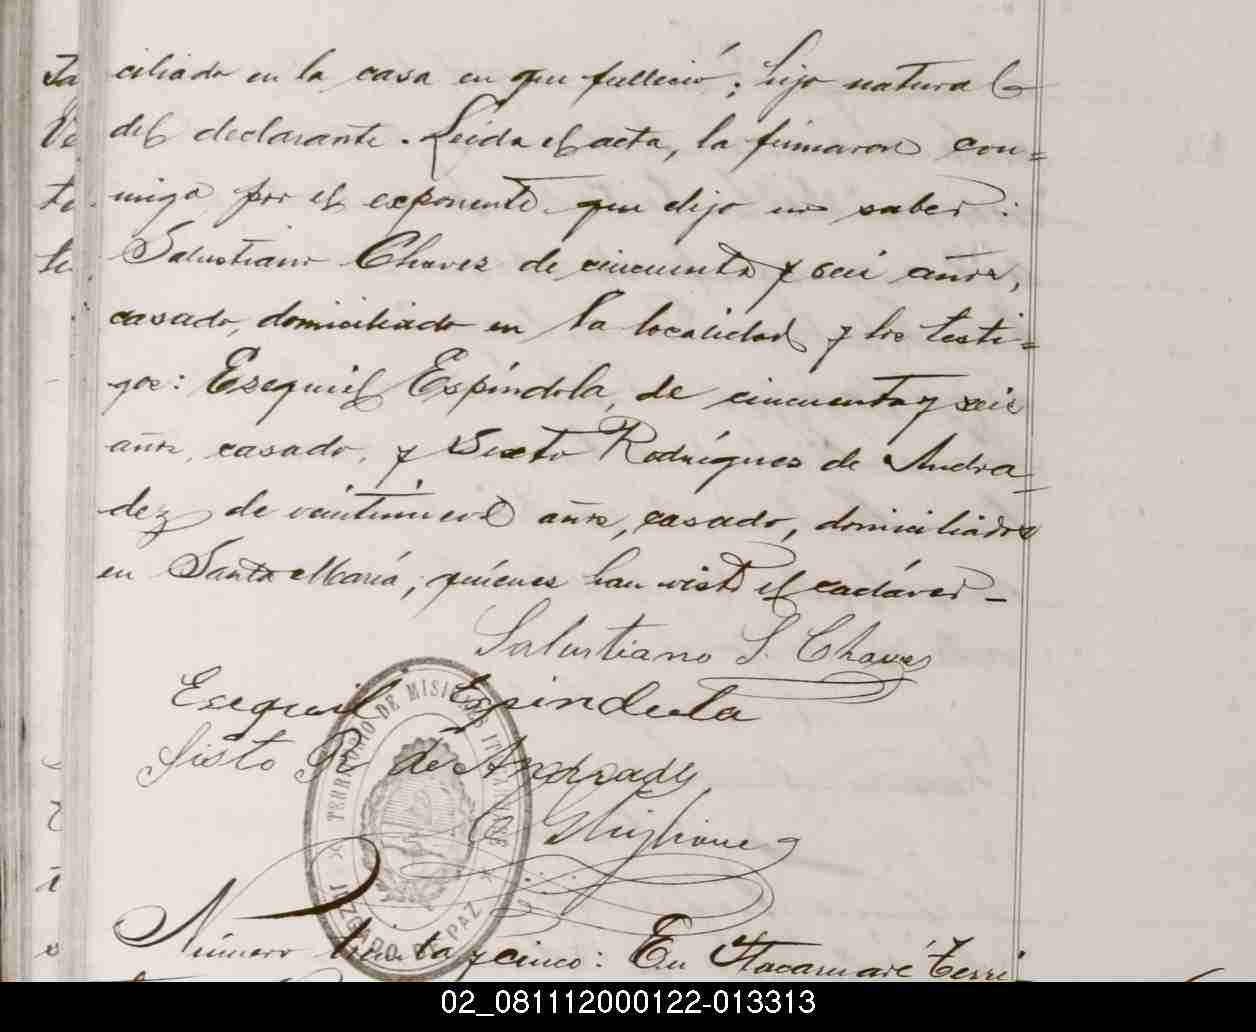 ciliado en la casa en que falleció; hijo natural
del declarante. Leida el acta, la firmaron con=
migo por el exponente que dijo no saber:
Salustiano Chaves de cincuenta y seis años,
casado, domiciliado en la localidad y los testi=
gos: Esequiel Espíndola, de cincuenta y seis
años, casado, y Sixto Rodríguez de Andra_
dez de veintinueve años, casado, domiciliados
en Santa María; quienes han visto el cadáver_
Salustiano S. Chaves
Esequiel Espindula
Sisto R. de Andrade
TERRITORIO DE MISIONES
JUZGADO DE PAZ
Número treinta y cinco: En Itacaruaré Terri
02_081112000122-013313